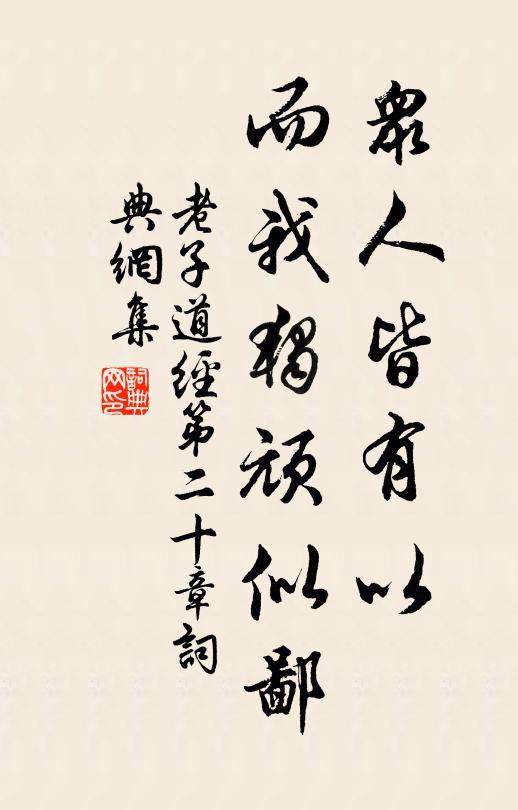 眾人皆有以
而我獨頑似鄙
老子道經第二十章詞
典網集
詞典
网印